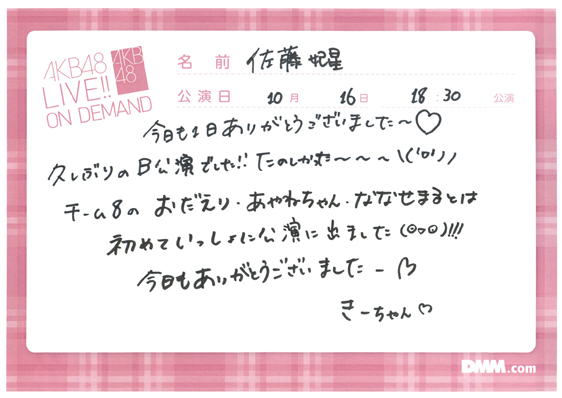 AKB48
LIVE!!
ON DEMAND
AKB
48
名前 佐藤 妃星
公演日 10月 16日 18:30 公演
今日も1日ありがとうございました〜♡
久しぶりのB公演でした!! たのしかた〜〜〜\(('ロ'))ノ
チーム8の おだえり・あやねちゃん・ななせまるとは
初めていっしょに公演に出ました(◎▽◎)!!!
今日もありがとうございましたー♡
きーちゃん♡
DMM.com